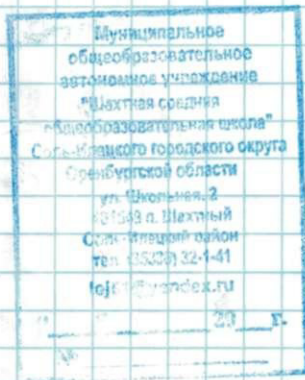 Муниципальное
общеобразовательное
автономное учреждение
"Шахтная средняя
общеобразовательная школа"
Соль-Илецкого городского округа
Оренбургской области
ул. Школьная, 2
п. Шахтный
Соль-Илецкий район
тел. 32-1-41
20 г.
№